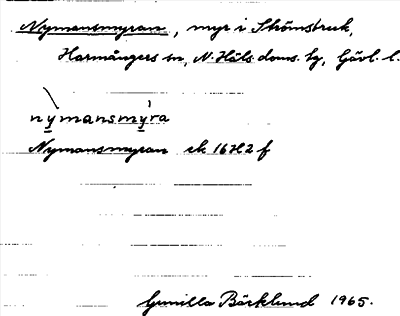 Nymansmyran, myr i Strömsbruk,
Harmångers sn, N. Häls. doms. hg, Gävl. l.
nymansmýra
Nymansmyran ek 16H2f
Gunilla Bäcklund 1965.